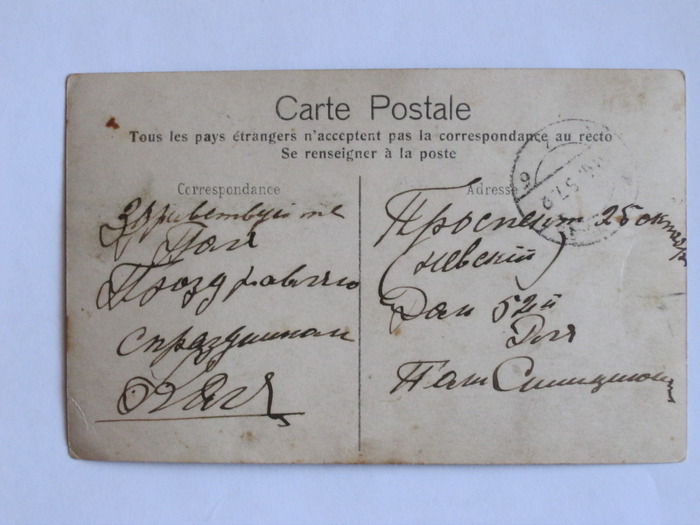 Carte Postale
Tous les pays étrangers n'acceptent pas la correspondance au recto
Se renseigner à la poste
Correspondance
Здравствуйте
Поля
Поздравляю
с праздником
Катя
Adresse
Проспект 25 октября
(Невский)
Дом 52й
Для